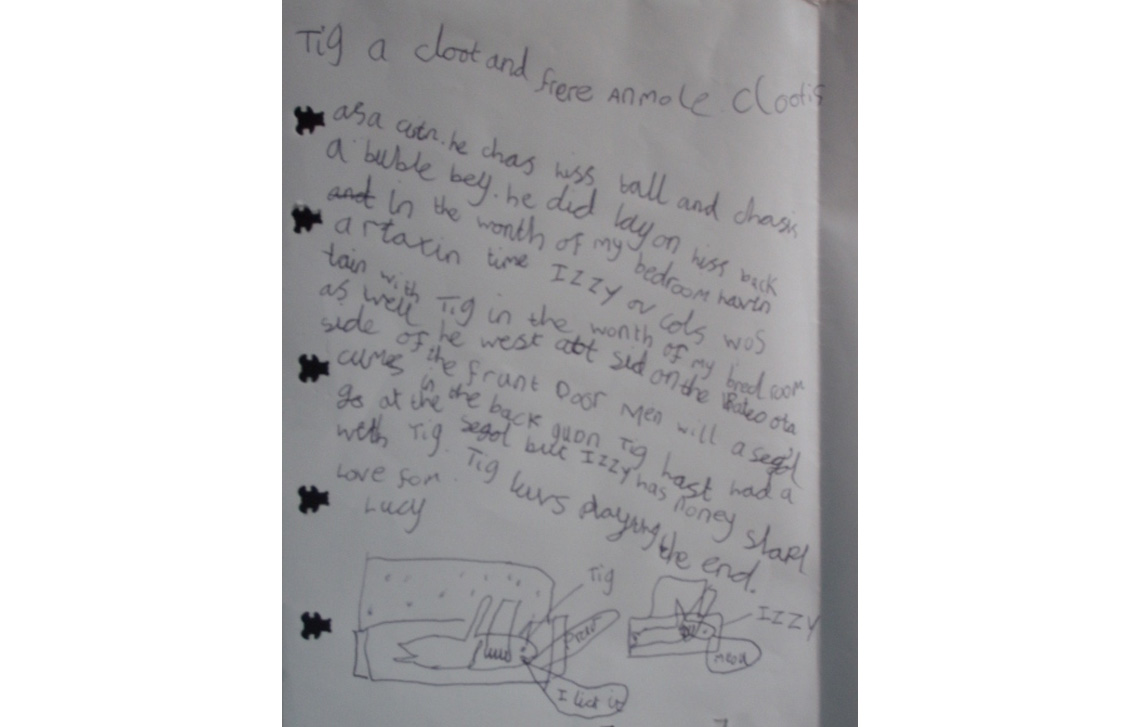 Tig a cloot and frere anmole clootis
asa cutn. he chas hiss ball and chasis
a buble bey. he did lay on hiss back
and in the wonth of my bedroom havin
a rtaxin time IZZY ov cols wos
tain with Tig in the wonth of my bred room
as well he west att sid on the
side of the frunt Door Men will a segol
cumes in the back gudn Tig hast had a
go at the segol but IZZY has honey start
with Tig. Tig luvs playing the end.
Love fom
Lucy
Tig
IZZY
Prrr
meow
I lict it